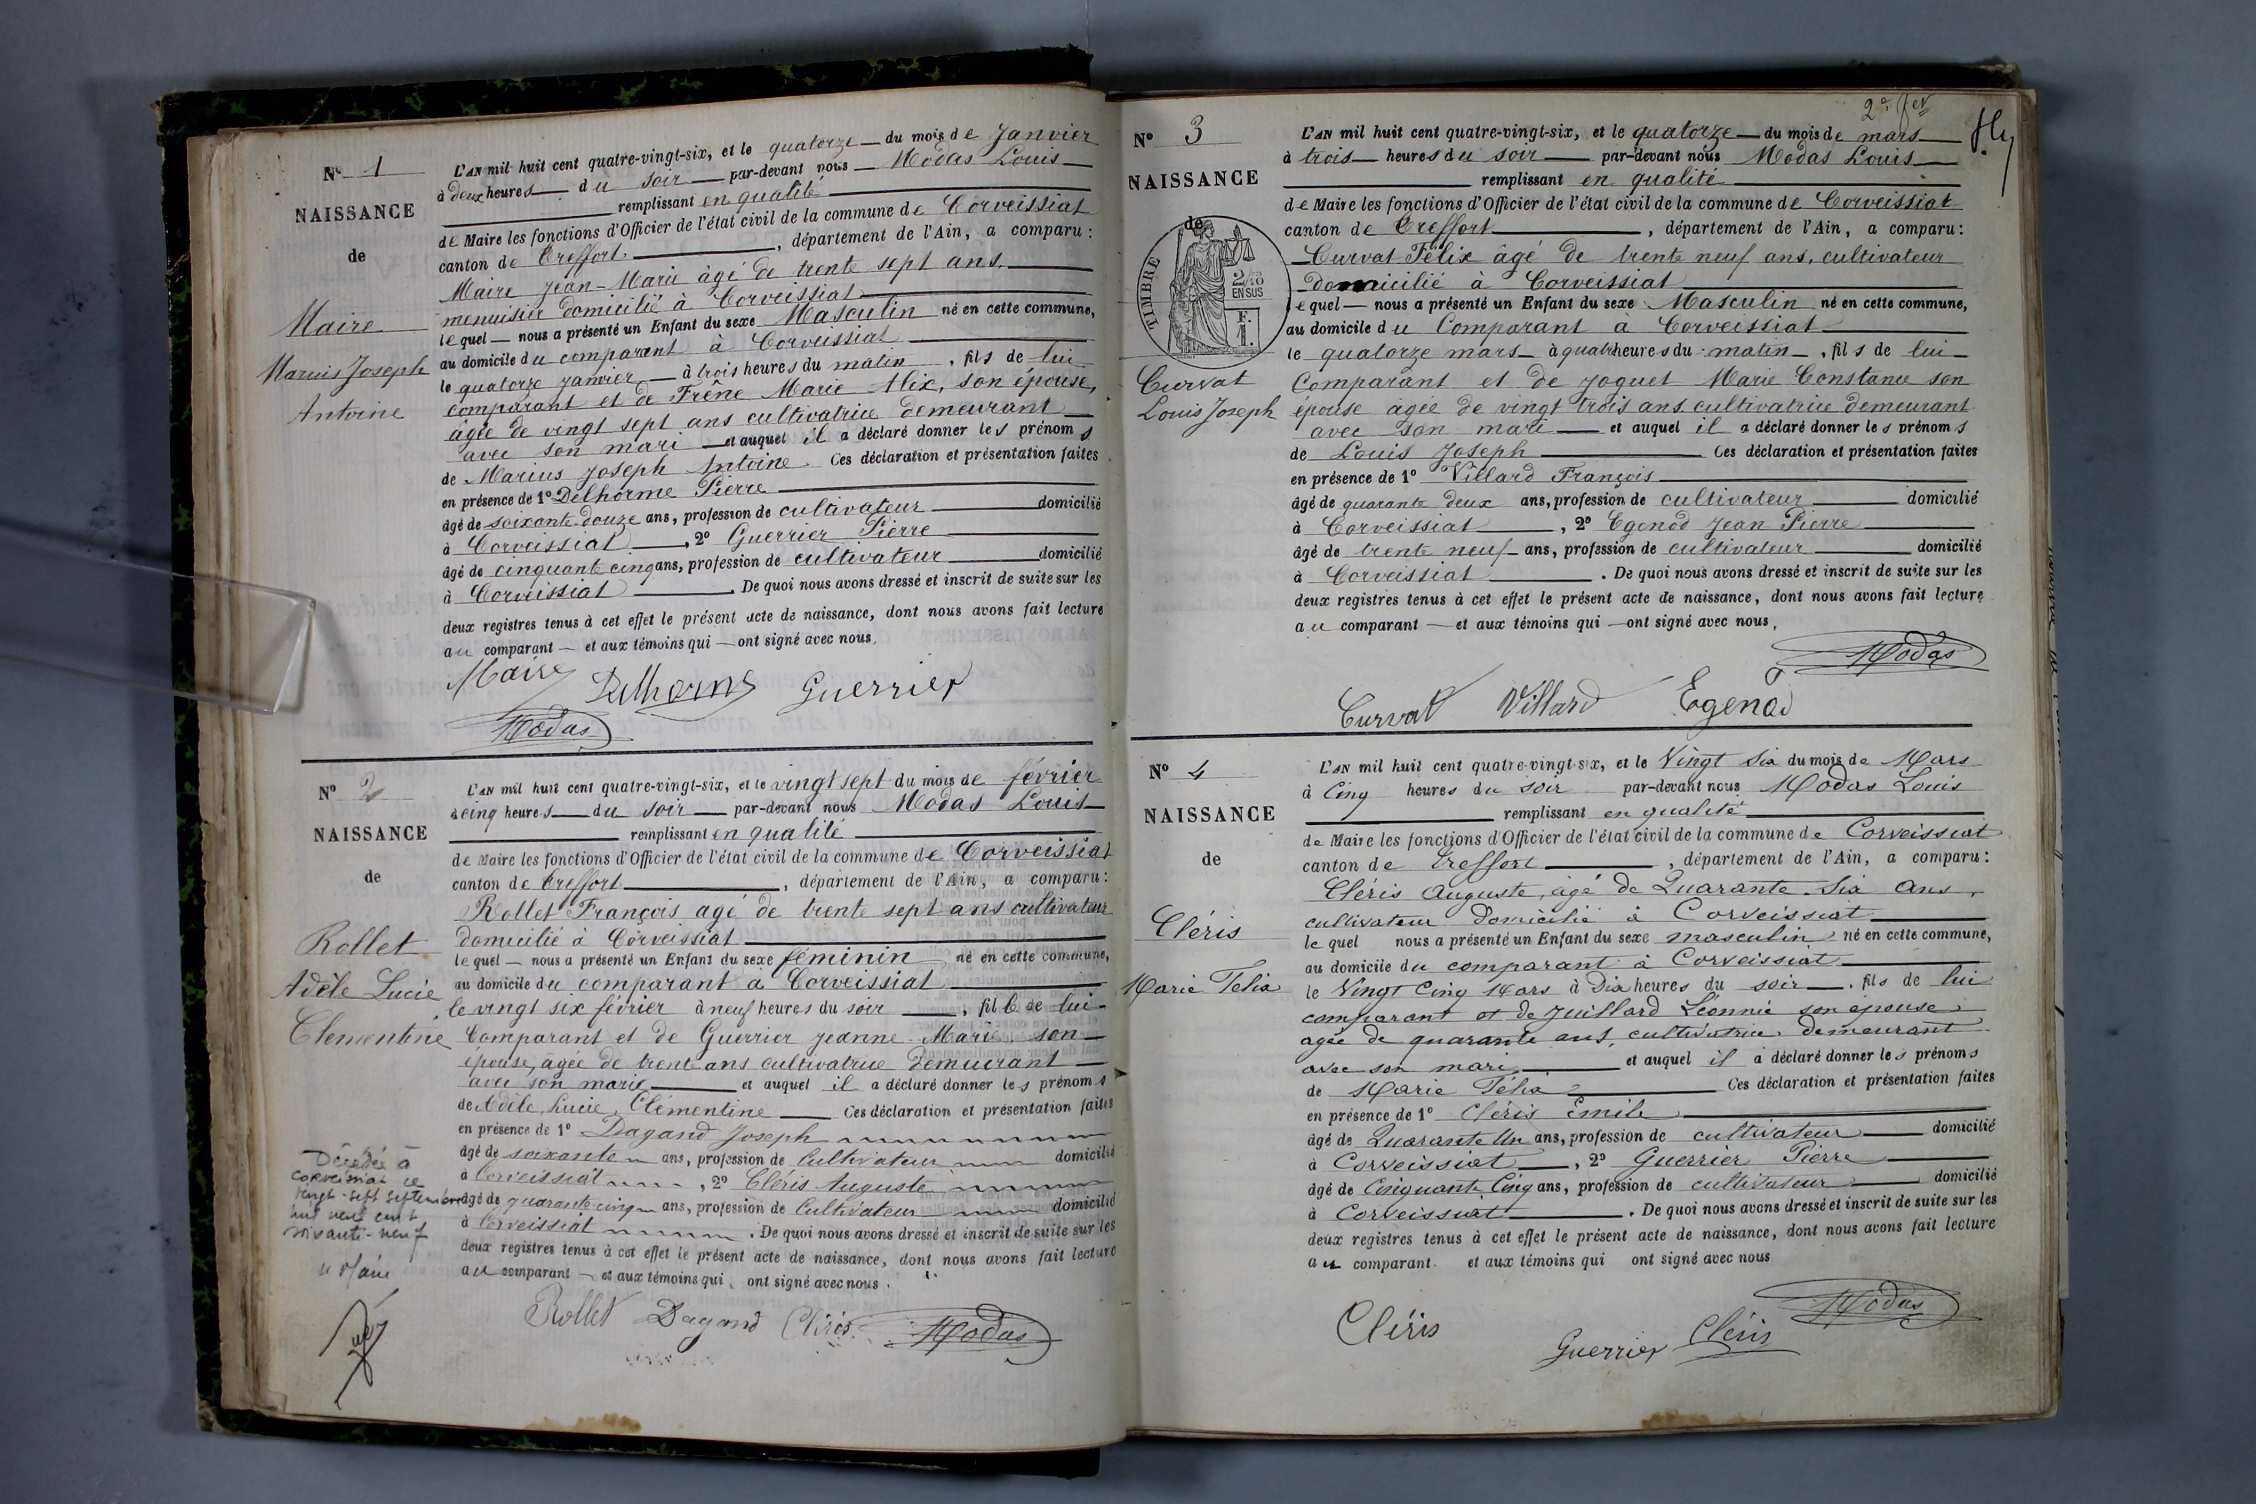 N° 1
NAISSANCE
de
Maire
Marius Joseph
Antoine
L'AN mil huit cent quatre-vingt-six, et le quatorze du mois de Janvier
à deux heures du soir par-devant nous Modas Louis
remplissant en qualité
de Maire les fonctions d'Officier de l'état civil de la commune de Corveissiat
canton de Treffort, département de l'Ain, a comparu:
Maire Jean-Marie âgé de trente sept ans,
menuisier domicilié à Corveissiat
lequel nous a présenté un Enfant du sexe Masculin né en cette commune,
au domicile du comparant à Corveissiat
le quatorze janvier à trois heures du matin, fils de lui
comparant et de Frêne Marie Alix, son épouse,
âgée de vingt sept ans cultivatrice demeurant
avec son mari et auquel il a déclaré donner les prénoms
de Marius Joseph Antoine. Ces déclaration et présentation faites
en présence de 1° Delhorme Pierre
âgé de soixante-douze ans, profession de cultivateur domicilié
à Corveissiat, 2° Guerrier Pierre
âgé de cinquante cinq ans, profession de cultivateur domicilié
à Corveissiat. De quoi nous avons dressé et inscrit de suite sur les
deux registres tenus à cet effet le présent acte de naissance, dont nous avons fait lecture
au comparant et aux témoins qui ont signé avec nous.
Maire Delhorme Guerrier
Modas
N° 2
NAISSANCE
de
Rollet
Adèle Lucie
Clementine
L'AN mil huit cent quatre-vingt-six, et le vingt sept du mois de février
à cinq heures du soir par-devant nous Modas Louis
remplissant en qualité
de Maire les fonctions d'Officier de l'état civil de la commune de Corveissiat
canton de Treffort, département de l'Ain, a comparu:
Rollet François agé de trente sept ans cultivateur
domicilié à Corveissiat
lequel nous a présenté un Enfant du sexe féminin né en cette commune,
au domicile du comparant à Corveissiat
le vingt six février à neuf heures du soir, fille de lui
Comparant et de Guerrier Jeanne Marie son
épouse, âgée de trente ans cultivatrice demeurant
avec son marie et auquel il a déclaré donner les prénoms
de Adèle, Lucie, Clémentine Ces déclaration et présentation faites
en présence de 1° Dagand Joseph
âgé de soixante ans, profession de Cultivateur domicilié
à Corveissiat, 2° Cléris Auguste
âgé de quarante cinq ans, profession de Cultivateur domicilié
à Corveissiat. De quoi nous avons dressé et inscrit de suite sur les
deux registres tenus à cet effet le présent acte de naissance, dont nous avons fait lecture
au comparant et aux témoins qui ont signé avec nous.
Décédée à
Corveissiat le
vingt-sept septembre
mil neuf cent
soixante-neuf
Le Maire
Rollet Dagand Cléris Modas
2e fer
N° 3
NAISSANCE
de
TIMBRE
2/10
EN SUS
F.
1.
Curvat
Louis Joseph
L'AN mil huit cent quatre-vingt-six, et le quatorze du mois de mars
à trois heures du soir par-devant nous Modas Louis
remplissant en qualité
de Maire les fonctions d'Officier de l'état civil de la commune de Corveissiat
canton de Treffort, département de l'Ain, a comparu:
Curvat Félix âgé de trente neuf ans, cultivateur
domicilié à Corveissiat
lequel nous a présenté un Enfant du sexe Masculin né en cette commune,
au domicile du Comparant à Corveissiat
le quatorze mars à quatre heures du matin, fils de lui
Comparant et de Joquet Marie Constance son
épouse âgée de vingt trois ans cultivatrice demeurant
avec son mari et auquel il a déclaré donner les prénoms
de Louis Joseph Ces déclaration et présentation faites
en présence de 1° Villard François
âgé de quarante deux ans, profession de cultivateur domicilié
à Corveissiat, 2° Egenod Jean Pierre
âgé de trente neuf ans, profession de cultivateur domicilié
à Corveissiat. De quoi nous avons dressé et inscrit de suite sur les
deux registres tenus à cet effet le présent acte de naissance, dont nous avons fait lecture
au comparant et aux témoins qui ont signé avec nous.
Modas
Curvat Villard Egenod
N° 4
NAISSANCE
de
Cléris
Marie Télia
L'AN mil huit cent quatre-vingt-six, et le Vingt Six du mois de Mars
à Cinq heures du soir par-devant nous Modas Louis
remplissant en qualité
de Maire les fonctions d'Officier de l'état civil de la commune de Corveissiat
canton de Treffort, département de l'Ain, a comparu:
Cléris Auguste, âgé de Quarante-Six ans,
cultivateur Domicilié à Corveissiat
lequel nous a présenté un Enfant du sexe masculin né en cette commune,
au domicile du comparant à Corveissiat
le Vingt Cinq Mars à Dix heures du soir, fils de lui
comparant et de Juillard Léonnie son épouse
agée de quarante ans, cultivatrice, demeurant
avec son mari et auquel il a déclaré donner les prénoms
de Marie Télia Ces déclaration et présentation faites
en présence de 1° Cléris Émile
âgé de Quarante Un ans, profession de cultivateur domicilié
à Corveissiat, 2° Guerrier Pierre
âgé de Cinquante Cinq ans, profession de cultivateur domicilié
à Corveissiat. De quoi nous avons dressé et inscrit de suite sur les
deux registres tenus à cet effet le présent acte de naissance, dont nous avons fait lecture
au comparant et aux témoins qui ont signé avec nous
Modas
Cléris Guerrier Cléris